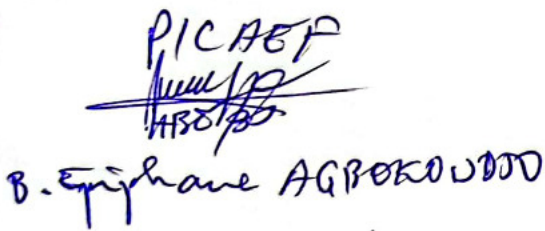 P/CAEF
ABO
B. Epiphane AGBOKOUDJO